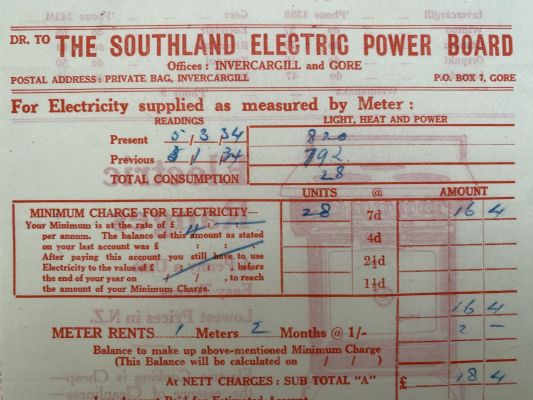 DR. TO THE SOUTHLAND ELECTRIC POWER BOARD
Offices: INVERCARGILL and GORE
POSTAL ADDRESS: PRIVATE BAG, INVERCARGILL P.O. BOX 7, GORE
For Electricity supplied as measured by Meter:
READINGS LIGHT, HEAT AND POWER
Present 5/3/34 820
Previous 5/1/34 792
TOTAL CONSUMPTION 28
UNITS @ AMOUNT
MINIMUM CHARGE FOR ELECTRICITY— 28 7d 16 4
Your Minimum is at the rate of £ : :
per annum. The balance of this amount as stated 4d
on your last account was £ : :
After paying this account you still have to use 2½d
Electricity to the value of £ : : before
the end of your year on / / , to reach 1½d
the amount of your Minimum Charge.
16 4
METER RENTS 1 Meters 2 Months @ 1/- 2 –
Balance to make up above-mentioned Minimum Charge
(This Balance will be calculated on / / )
At NETT CHARGES: SUB TOTAL "A" £ 18 4